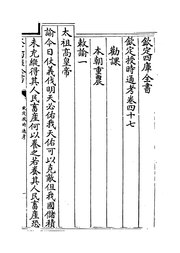 欽定四庫全書
欽定授時通考卷四十七
勸課
本朝重農
敕諭一
太祖高皇帝
諭今日伏義伐明天必佑我天佑可以克敵但我國儲積
未充縱得其人民畜產何以養之若養其人民畜產恐